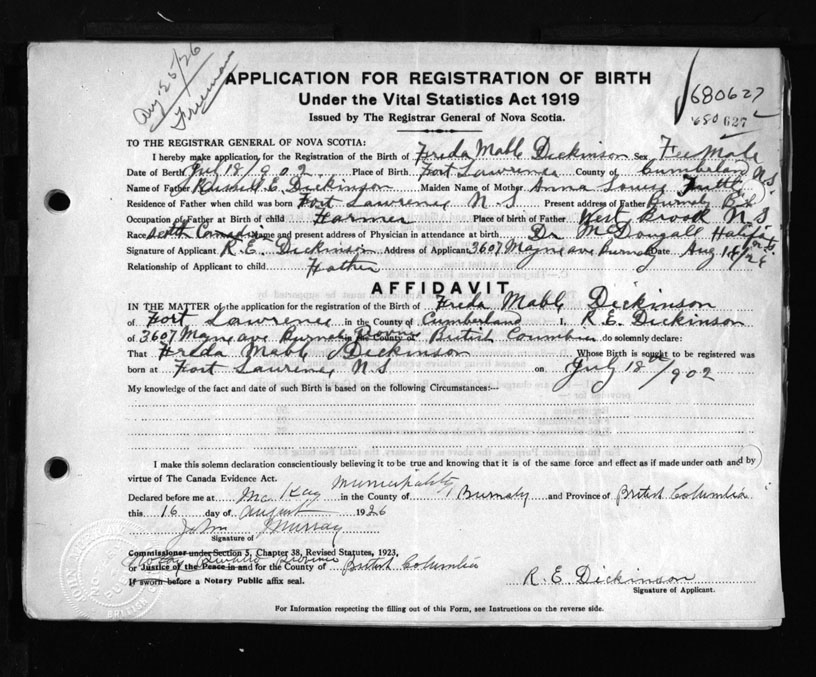 Aug 25/26
Freeman
APPLICATION FOR REGISTRATION OF BIRTH
Under the Vital Statistics Act 1919
Issued by The Registrar General of Nova Scotia.
680627
680 627
TO THE REGISTRAR GENERAL OF NOVA SCOTIA:
I hereby make application for the Registration of the Birth of Freda Mable Dickinson Sex Fee Male
Date of Berth July 18/902 Place of Birth Fort Lawrence County of Cumberland N.S.
Name of Father Russell E. Dickinson Maiden Name of Mother Anna Louise Tuttle
Residence of Father when child was born Fort Lawrence N S Present address of Father Burnaby B.C.
Occupation of Father at Birth of child Farmer Place of birth of Father West Brook N.S
Race Scotch Canadian Name and present address of Physician in attendance at birth Dr McDougall Halifax
Signature of Applicant R.E. Dickinson Address of Applicant 3607 Mayne ave Burnaby Date Aug 16/26
Relationship of Applicant to child Father
AFFIDAVIT
IN THE MATTER of the application for the registration of the Birth of Freda Mable Dickinson
of Fort Lawrence in the County of Cumberland I, R.E. Dickinson
of 3607 Mayne ave Burnaby in the County of Province British Coumbia do solemnly declare:
That Freda Mable Dickinson Whose Birth is sought to be registered was
born at Fort Lawrence N.S on July 18th/902
My knowledge of the fact and date of such Birth is based on the following Circumstances:—
I make this solemn declaration conscientiously believing it to be true and knowing that it is of the same force and effect as if made under oath and by
virtue of The Canada Evidence Act.
Declared before me at McKay Municipality in the County of Burnaby and Province of British Columbia
this 16 day of August 1926
John Murray
Signature of
Commissioner under Section 5, Chapter 38, Revised Statutes, 1923,
Notary Public Province
or Justice of the Peace in and for the County of British Columbia
If sworn before a Notary Public affix seal.
R.E. Dickinson
Signature of Applicant.
For Information respecting the filling out of this Form, see Instructions on the reverse side.